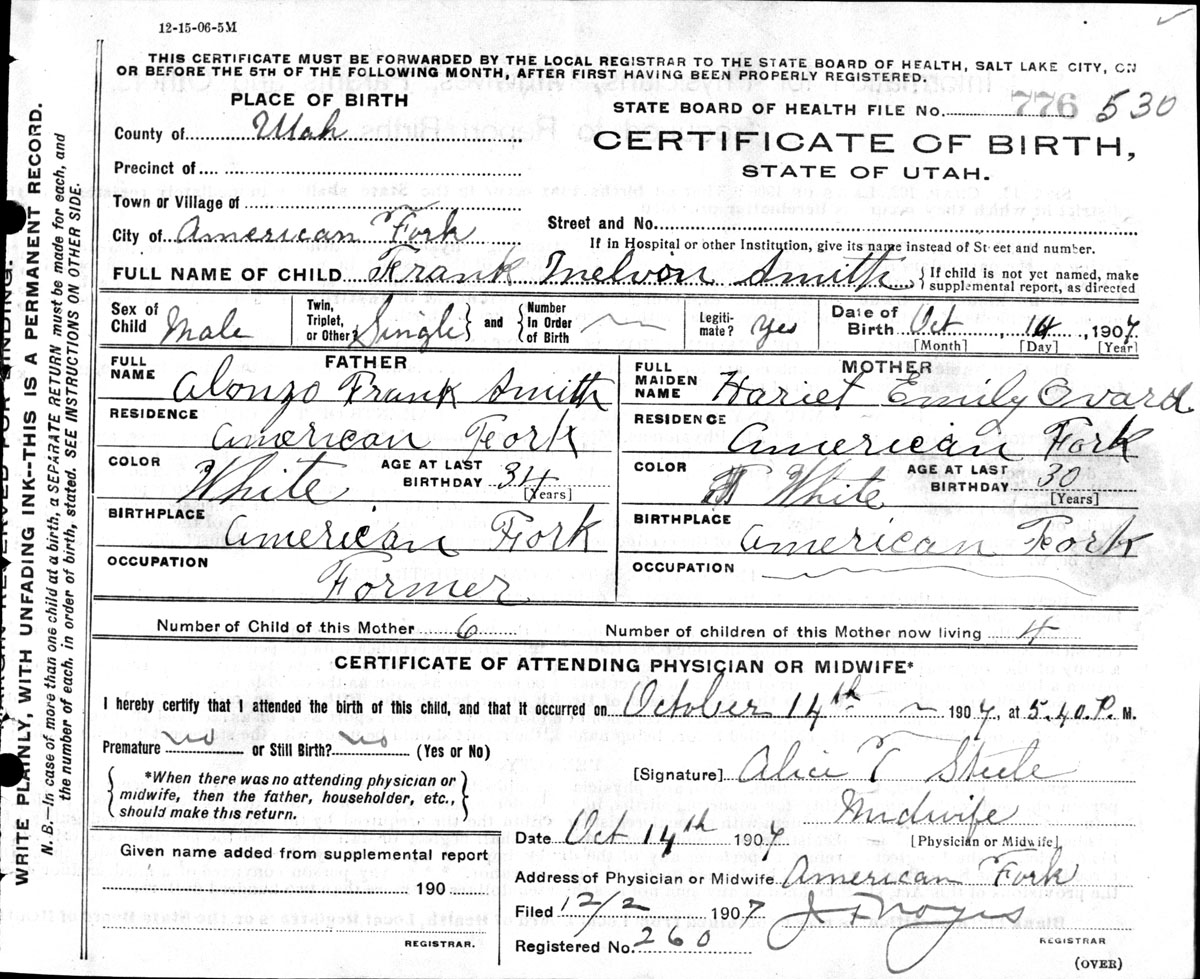 12-15-06-5M
THIS CERTIFICATE MUST BE FORWARDED BY THE LOCAL REGISTRAR TO THE STATE BOARD OF HEALTH, SALT LAKE CITY, ON
OR BEFORE THE 5TH OF THE FOLLOWING MONTH, AFTER FIRST HAVING BEEN PROPERLY REGISTERED.
PLACE OF BIRTH
STATE BOARD OF HEALTH FILE No. 776 530
County of Utah
CERTIFICATE OF BIRTH,
STATE OF UTAH.
Precinct of
Town or Village of
Street and No.
City of American Fork
If in Hospital or other Institution, give its name instead of Street and number.
FULL NAME OF CHILD Frank Melvon Smith { If child is not yet named, make
supplemental report, as directed
Sex of Child Male
Twin, Triplet, or Other Single } and { Number In Order of Birth
Legitimate? Yes
Date of Birth Oct 14, 1907.
[Month] [Day] [Year]
FATHER
FULL NAME Alonzo Frank Smith
RESIDENCE American Fork
COLOR White AGE AT LAST BIRTHDAY 34
[Years]
BIRTHPLACE American Fork
OCCUPATION Former
MOTHER
FULL MAIDEN NAME Hariet Emily Ovard
RESIDENCE American Fork
COLOR White AGE AT LAST BIRTHDAY 30
[Years]
BIRTHPLACE American Fork
OCCUPATION
Number of Child of this Mother 6 Number of children of this Mother now living 4
CERTIFICATE OF ATTENDING PHYSICIAN OR MIDWIFE*
I hereby certify that I attended the birth of this child, and that it occurred on October 14th 1907, at 5.40. P. M.
Premature no or Still Birth? no (Yes or No)
{ *When there was no attending physician or
midwife, then the father, householder, etc.,
should make this return. }
[Signature] Alice T Steele
Midwife
[Physician or Midwife]
Date Oct 14th 1907
Given name added from supplemental report
190
REGISTRAR.
Address of Physician or Midwife American Fork
Filed 12/2 1907
Registered No. 260
REGISTRAR
(OVER)
MARGIN RESERVED FOR BINDING.
WRITE PLAINLY, WITH UNFADING INK--THIS IS A PERMANENT RECORD.
N. B.—In case of more than one child at a birth, a SEPARATE RETURN must be made for each, and
the number of each, in order of birth, stated. SEE INSTRUCTIONS ON OTHER SIDE.